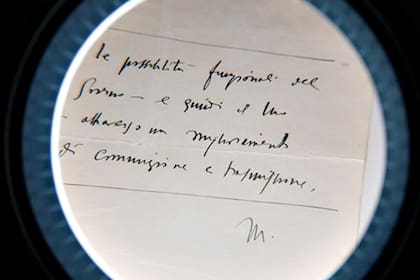 le possibilità funzionali del
Governo – e quindi il suo
– attraverso un miglioramento
di comunicazione e trasmissione,
M.